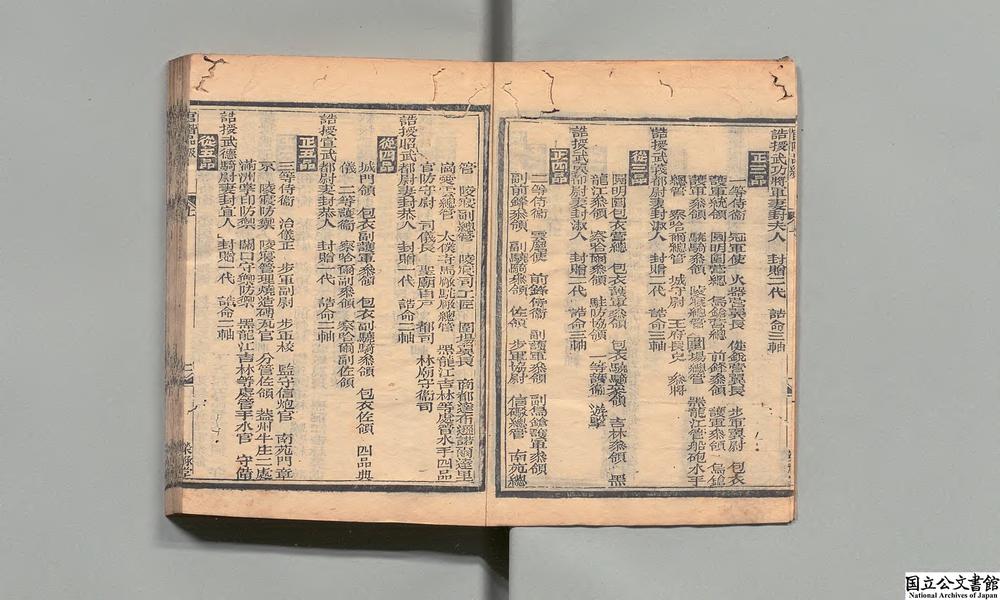 誥授武功將軍妻封夫人 封贈二代 誥命三軸
正三品
一等侍衞 冠軍使 火器營翼長 健銳營翼長 步軍翼尉 包衣
護軍統領 圓明園營總 鳥鎗營總 前鋒參領 護軍參領 鳥鎗
護軍參領 驍騎參領 陵寢總管 圍場總管 黑龍江管船砲水手
總管 察哈爾總管 城守尉 王府長史 參將
誥授武義都尉妻封淑人 封贈二代 誥命三軸
從三品
圓明園包衣營總 包衣護軍參領 包衣驍騎參領 吉林參領 黑
龍江參領 察哈爾參領 駐防協領 一等護衞 遊擊
誥授武翼都尉妻封淑人 封贈二代 誥命三軸
正四品
二等侍衞 雲麾使 前鋒侍衞 副護軍參領 副鳥鎗護軍參領
副前鋒參領 副驍騎參領 佐領 步軍協尉 信礮總管 南苑總
管 陵寢副總管 陵寢司工匠 圍場翼長 商都達布遜諾爾達里
崗愛總管 太僕寺馬廠駝廠總管 黑龍江吉林等處管水手四品
官防守尉 司儀長 聖廟百戶 都司 林廟守衞司
誥授昭武都尉妻封恭人 封贈二代 誥命二軸
從四品
城門領 包衣副護軍參領 包衣副驍騎參領 包衣佐領 四品典
儀 二等護衞 察哈爾副參領 察哈爾副佐領
誥授宣武都尉妻封恭人 封贈一代 誥命二軸
正五品
三等侍衞 治儀正 步軍副尉 步軍校 監守信炮官 南苑門章
京 陵寢防禦 陵寢管理燒造磚瓦官 分管佐領 蓋州牛庄二處
滿洲掌印防禦 關口守禦防禦 黑龍江吉林等處管手水官 守備
誥授武德騎尉妻封宜人 封贈一代 誥命二軸
從五品
國立公文書館
National Archives of Japan